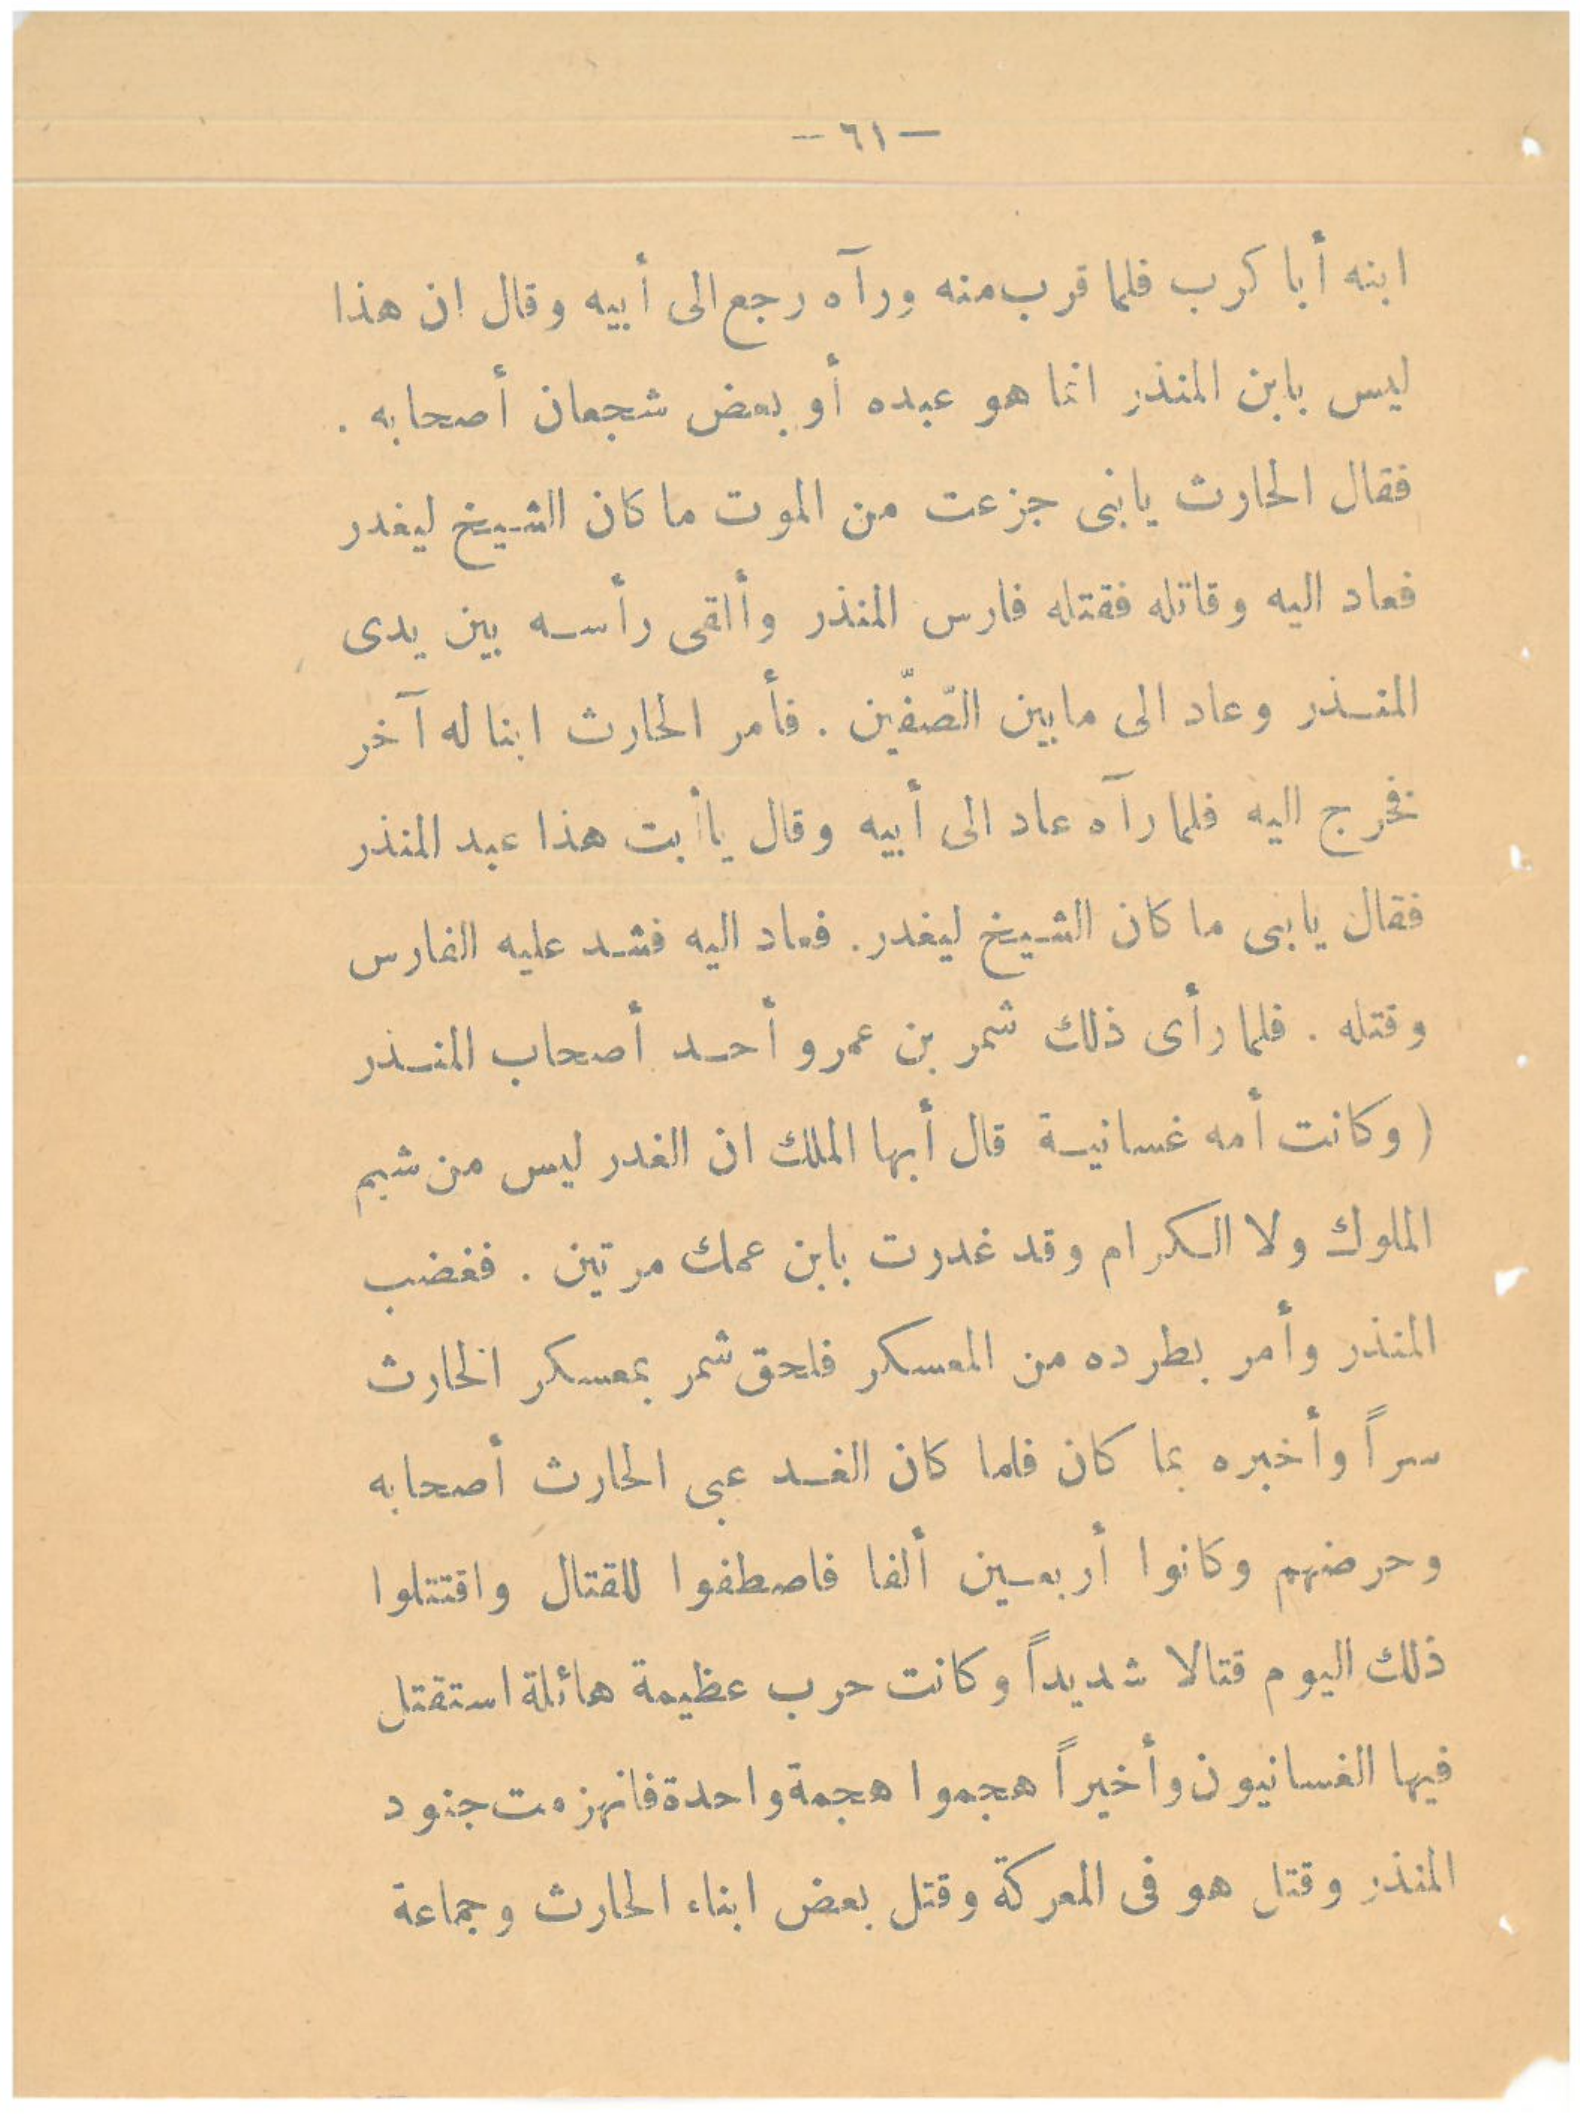 — ٦١ —
ابنه أبا كرب فلما قرب منه ورآه رجع الى أبيه وقال ان هذا
ليس بابن المنذر انما هو عبده أو بعض شجعان أصحابه .
فقال الحارث يابنى جزعت من الموت ما كان الشيخ ليغدر
فعاد اليه وقاتله فقتله فارس المنذر وألقى رأسه بين يدى
المنذر وعاد الى مابين الصّفّين . فأمر الحارث ابنا له آخر
فخرج اليه فلما رآه عاد الى أبيه وقال ياأبت هذا عبد المنذر
فقال يابنى ما كان الشيخ ليغدر. فعاد اليه فشد عليه الفارس
وقتله . فلما رأى ذلك شمر بن عمرو أحد أصحاب المنذر
( وكانت أمه غسانية قال أيها الملك ان الغدر ليس من شيم
الملوك ولا الكرام وقد غدرت بابن عمك مرتين . فغضب
المنذر وأمر بطرده من المعسكر فلحق شمر بمعسكر الحارث
سراً وأخبره بما كان فلما كان الغد عبى الحارث أصحابه
وحرضهم وكانوا أربعين ألفا فاصطفوا للقتال واقتتلوا
ذلك اليوم قتالا شديداً وكانت حرب عظيمة هائلة استقتل
فيها الغسانيون وأخيراً هجموا هجمة واحدة فانهزمت جنود
المنذر وقتل هو فى المعركة وقتل بعض ابناء الحارث وجماعة